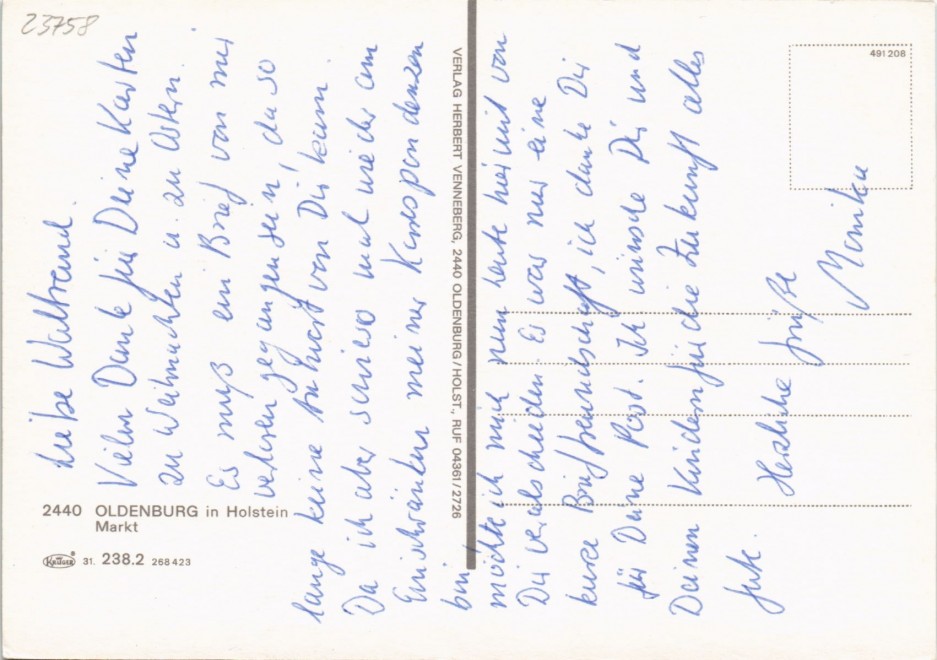 23758
Liebe Waltraud.
Vielen Dank für Deine Karten
zu Weihnachten u. zu Ostern.
Es muß ein Brief von mir
verloren gegangen sein, da so
lange keine Antwort von Dir kam.
Da ich aber sowieso mal wieder am
Einschränken meiner Korrespondenzen
bin,
möchte ich mich nun heute hiermit von
Dir verabschieden. Es war nur eine
kurze Brieffreundschaft, ich danke Dir
für Deine Post. Ich wünsche Dir und
Deinen Kindern für die Zukunft alles
Gute.
Herzliche Grüße
Monika
2440 OLDENBURG in Holstein
Markt
KRÜGER 31. 238.2 268 423
VERLAG HERBERT VENNEBERG, 2440 OLDENBURG/HOLST., RUF 04361/2726
491 208